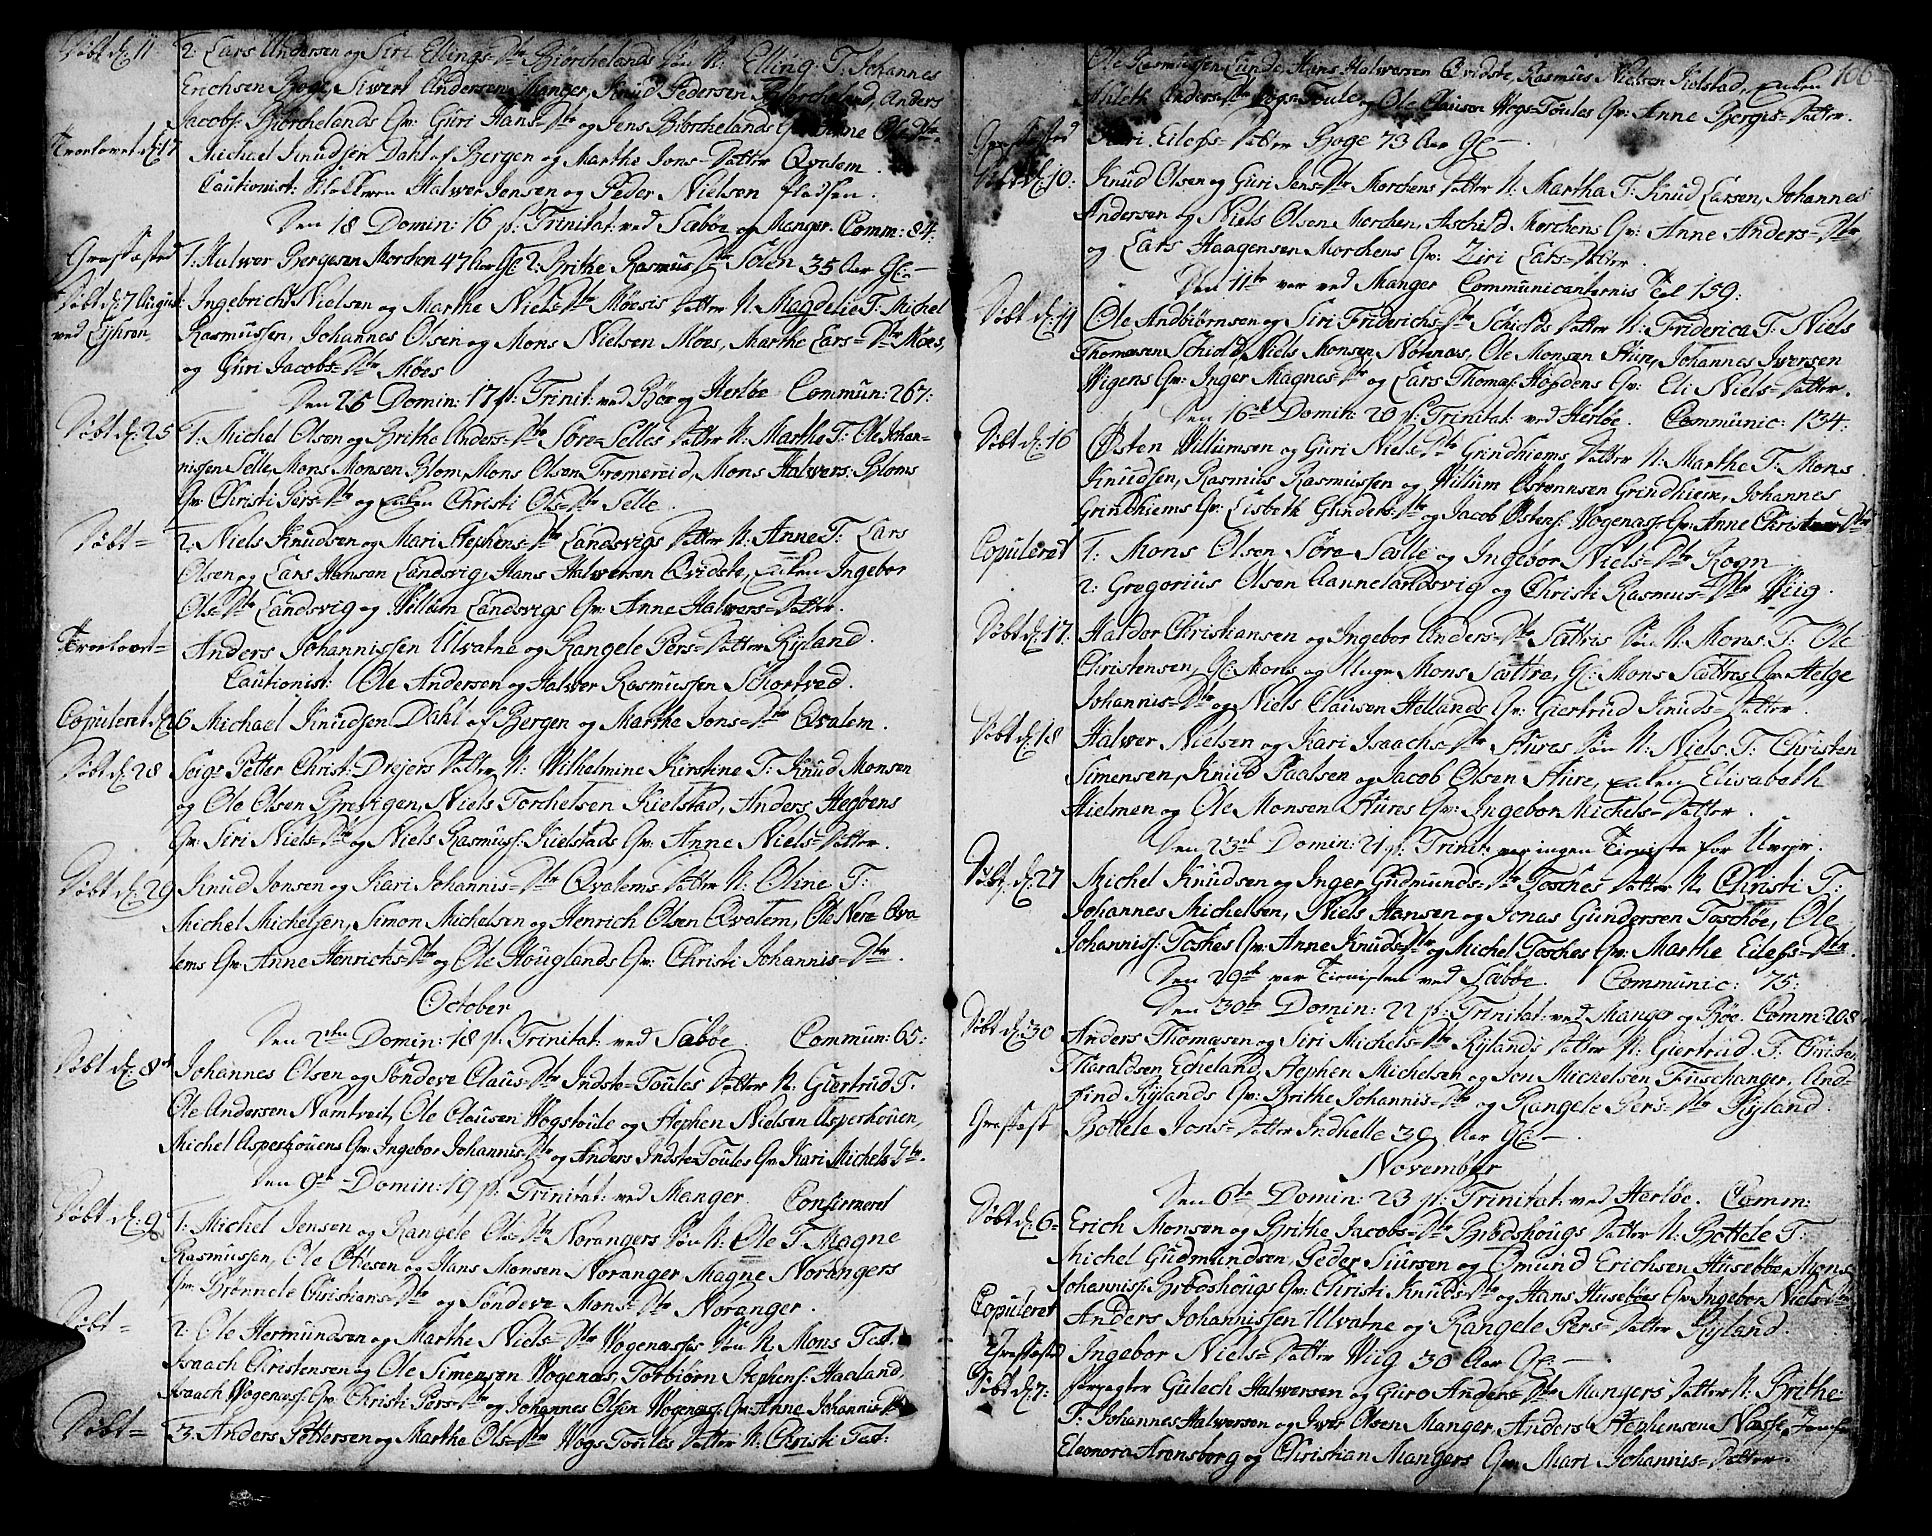 Døbt d: 11 2: Lars Andersen og Siri Ellings-Dtr Biörchelands Sön N: Elling. T: Johannes
Erichsen Boge, Siwert Andersen Manger, Knud Pedersen Biörcheland, Anders
Jacobs: Biörchelands Qv: Guri Hans-Dtr og Jens Biörchelands Qv: Anne Ols-Dtr
Troelovet d: 17 Michael Knudsen Dahl af Bergen og Marthe Jons-Datter Qvalem.
Cautionist: Klokkeren Halwer Jensen og Peder Nielsen
Den 18 Domin: 16 p: Trinitat: ved Sæbøe og Manger. Comm: 84.
Græsfæsted 1: Halwer Bergesen Morchen 47 Aar Gl: 2: Brithe Rasmus-Dtr Solen 35 Aar Gl:-
Døbt d: 7 August Ingebricht Nielsen og Marthe Niels-Dtr Möesis Datter N: Magdelie T: Michel
ved Rasmussen, Johannes Olsen og Mons Nielsen Möes, Marthe Lars-Dtr Möes,
og Guri Jacobs-Dtr Möes
Den 25 Domin: 17 p: Trinit: ved Böe og Herlöe Commun: 267:
Døbt d: 25 1: Michel Olsen og Brithe Anders-Dtr Söre-Selles Datter N: Marthe T: Ole Johan-
nissen Selle, Mons Monsen Blom, Mons Olsen Fromereid, Mons Halvers: Bloms
Qv: Christi Pers-Dtr og Enken Christi Ols-Dtr Selle.
Døbt = 2: Niels Knudsen og Mari Stephens-Dtr Landsvigs Datter N: Anne T: Lars
Olsen og Lars Hansen Landsvig, Hans Halwersen Qvidste, Enken Ingebor
Ols-Dtr Landsvig og Willum Landsvigs Qv: Anne Halvers-Datter.
Troelovet= Anders Johannissen Ulvatne og Rangele Pers-Datter Ryland.
Cautionist: Ole Andersen og Halwer Rasmussen Schortved.
Copuleret d: 26 Michael Knudsen Dahl af Bergen og Marthe Jons-Dtr Qvalem.
Døbt d: 28 Petter Christ: Drejers Datter N: Wilhelmine Kirstine T: Knud Monsen
og Ole Olsen Brevigen, Niels Torchelsen Kielstad, Anders Hegöens
Qv: Siri Niels-Dtr og Niels Rasmuss: Kielstads Qv: Anne Niels-Datter.
Døbt d: 29 Knud Jonsen og Kari Johannis-Dtr Qvalems Datter N: Oline T:
Michel Michelsen, Simon Michelsen og Henrich Olsen Qvalem, Ole Nere Qva
lems Qv: Anne Henrichs-Dtr og Ole Houglands Qv: Christi Johannis-Dtr.
October
Den 2den Domin: 18 p: Trinitat: ved Sæbøe. Commun: 65:
Døbt d: 8de Johannes Olsen og Söndeve Claus-Dtr Indste-Toules Datter N: Giertrud T.
Ole Andersen Namtveit, Ole Clausen Wogstoule og Stephen Nielsen Aspeshouen,
Michel Aspeshouens Qv: Ingebor Johannis-Dtr og Anders Indste-Toules Qv: Kari Michels Dtr.
Den 9de Domin: 19 p: Trinitat: ved Manger. Confirmeret
Døbt d: 9 1: Michel Jensen og Rangele Ols-Dtr Norangers Sön N: Ole T. Magne
Rasmussen, Ole Ottesen og Hans Monsen Noranger, Magne Norangers
Qv: Brönnele Christians-Dtr og Söndeve Mons-Dtr Noranger.
Døbt = 2: Ole Hermundsen og Marthe Niels-Dtr Wogenæsses Sön N: Mons Test:
Isaach Christensen og Ole Simensen Wogenæs, Torbiörn Stephens: Haaland,
Isaach Wogenæss: Qv: Christi Pers-Dtr og Johannes Olsen Wogenæss: Qv: Anne Johannis-Dtr
Døbt = 3: Anders Pettersen og Marthe Ols-Dtr Wogs Toules Datter N: Christi Test:
106
Ole Rasmussen Lunde, Hans Halwersen Qvidste, Rasmus Nielsen Kielstad, Enken
Anders-Dtr Wogs-Toule og Ole Clausen Wogs-Toules Qv: Anne Bergis-Datter.
Græsfæsted Kari Eilefs-Datter Boge 73 Aar Gl:-
Døbt d: 10: Knud Olsen og Guri Jens-Dtr Morchens Datter N: Martha T: Knud Larsen, Johannes
Andersen og Niels Olsen Morchen, Aschild Morchens Qv: Anne Anders-Dtr
og Lars Haagensen Morchens Qv: Ziri Lars-Datter.
Den 11te var ved Manger Communicanternis Tal 159:
Døbt d: 11 Ole Andbiörnsen og Siri Friderichs-Dtr Schiolds Datter N: Friderica T: Niels
Thomæsen Schiold, Niels Monsen Notenæs, Ole Monsen Sture, Johannes Iwersen
Wigens Qv: Inger Magnes-Dtr og Lars Thomas: Hopdens Qv: Eli Niels-Datter.
Den 16de Domin: 20 p: Trinitat: ved Herlöe. Communic: 134.
Døbt d: 16 Østen Willumsen og Guri Niels-Dtr Grindhiems Datter N: Marthe T: Mons
Knudsen, Rasmus Rasmussen og Willum Østennsen Grindhiem, Johannes
Grindhiems Qv: Lisbeth Gunders-Dtr og Jacob Østens: Wogenæss: Qv: Anne Christens-Dtr
Copuleret 1: Mons Olsen Söre Sælle og Ingebor Niels-Dtr Rogn
2: Gregorius Olsen Aannelandsvig og Christi Rasmus-Dtr Wiig.
Døbt d: 17: Haldor Christiansen og Ingebor Anders-Dtr Sætres Sön N: Mons. T: Ole
Christensen, Gl: Mons og Unge Mons Sættre, Gl: Mons Sættres Qv: Helge
Johannis-Dtr og Niels Clausen Hellands Qv: Giertrud Knuds-Datter.
Døbt d: 18 Halwer Nielsen og Kari Isaachs-Dtr Stures Sön N: Niels. T: Christen
Simensen, Knud Paalsen og Jacob Olsen Sture, Enken Elisabeth
Hielmen og Ole Monsen Stures Qv: Ingebor Michels-Datter.
Den 23de Domin: 21 p: Trinit: var ingen Tieniste for Uvejr.
Døbt d: 27 Michel Knudsen og Inger Gudmunds-Dtr Tosches Datter N: Christi T:
Johannes Michelsen, Niels Hansen og Jonas Gundersen Toschöe, Ole
Johanniss: Toskes Qv: Anne Knuds-Dtr og Michel Tosches Qv: Marthe Eilefs-Dtr.
Den 29de var Tienisten ved Sæbøe. Communic: 75:
Den 30te Domin: 22 p: Trinitat: ved Manger og Böe. Comm: 208
Døbt d: 30 Anders Thomæsen og Siri Michels-Dtr Rylands Datter N: Giertrud. T: Christen
Haraldsen Echeland, Stephen Michelsen og Jon Michelsen Fuschanger, And-
find Rylands Qv: Brithe Johannis-Dtr og Rangele Pers-Dtr Ryland.
Græsfæst Bottele Jons-Datter Indhelle 39 Aar Gl:-
November
Den 6te Domin: 23 p: Trinitat: ved Herlöe. Comm:
Døbt d: 6= Erich Monsen og Brithe Jacobs-Dtr Brødshougs Datter N: Bottele T:
Michel Gudmundsen, Peder Siursen og Omund Erichsen Husebbø, Mons
Johanniss: Brødshougs Qv: Christi Knuds-Dtr og Hans Huseböes Qv: Ingebor Niels-Dtr
Copuleret Anders Johannissen Ulvatne og Rangele Pers-Datter Ryland.
Græsfæsted Ingebor Niels-Datter Wiig 30 Aar Gl:-
Døbt d: 7: Forpagter Gulech Halwersen og Guro Anders-Dtr Mangers Datter N: Brithe
T: Johannes Halwersen og Iwer Olsen Manger, Anders Stephensen Næsse,
Eleonora Arensborg og Christian Mangers Qv: Mari Johannis-Datter.